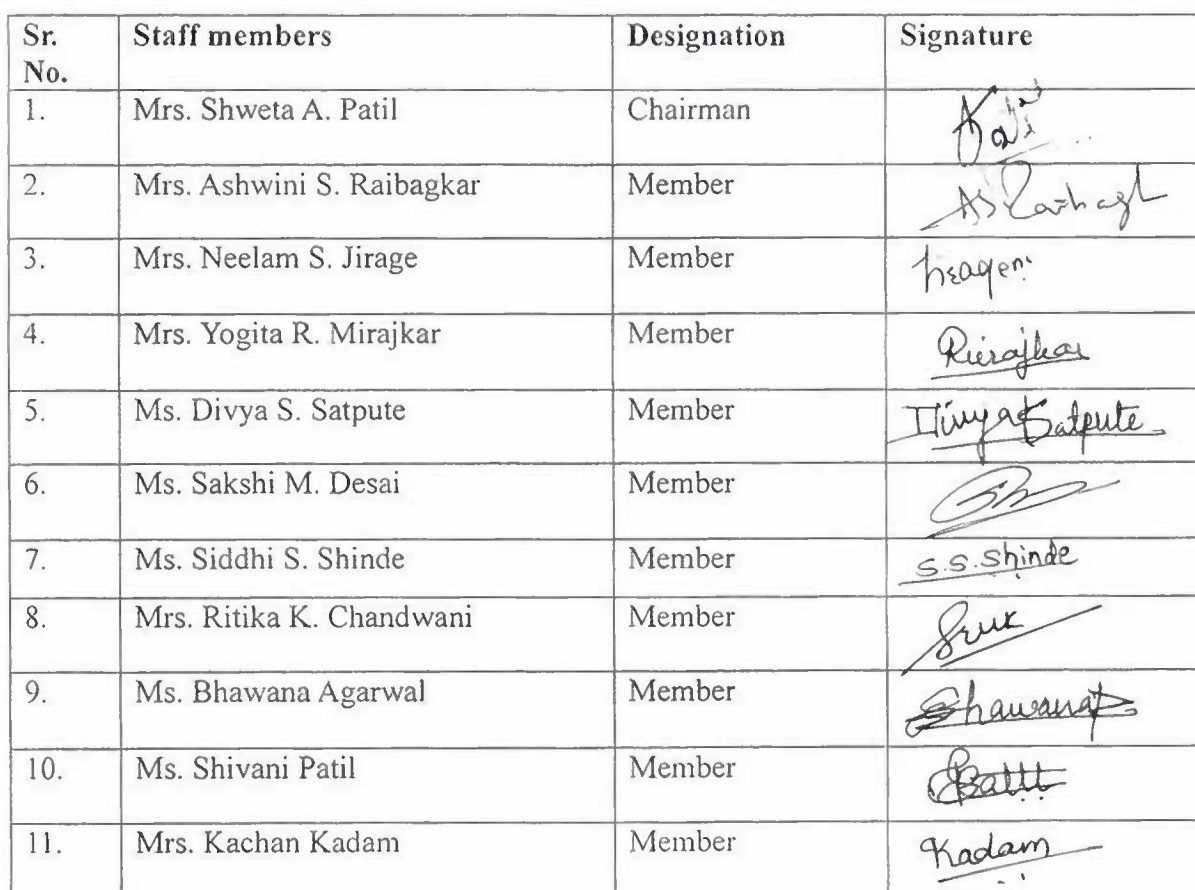 Sr. No. Staff members Designation Signature
1. Mrs. Shweta A. Patil Chairman
2. Mrs. Ashwini S. Raibagkar Member
3. Mrs. Neelam S. Jirage Member
4. Mrs. Yogita R. Mirajkar Member
5. Ms. Divya S. Satpute Member Divya Satpute
6. Ms. Sakshi M. Desai Member
7. Ms. Siddhi S. Shinde Member S.S.Shinde
8. Mrs. Ritika K. Chandwani Member
9. Ms. Bhawana Agarwal Member
10. Ms. Shivani Patil Member
11. Mrs. Kachan Kadam Member Kadam